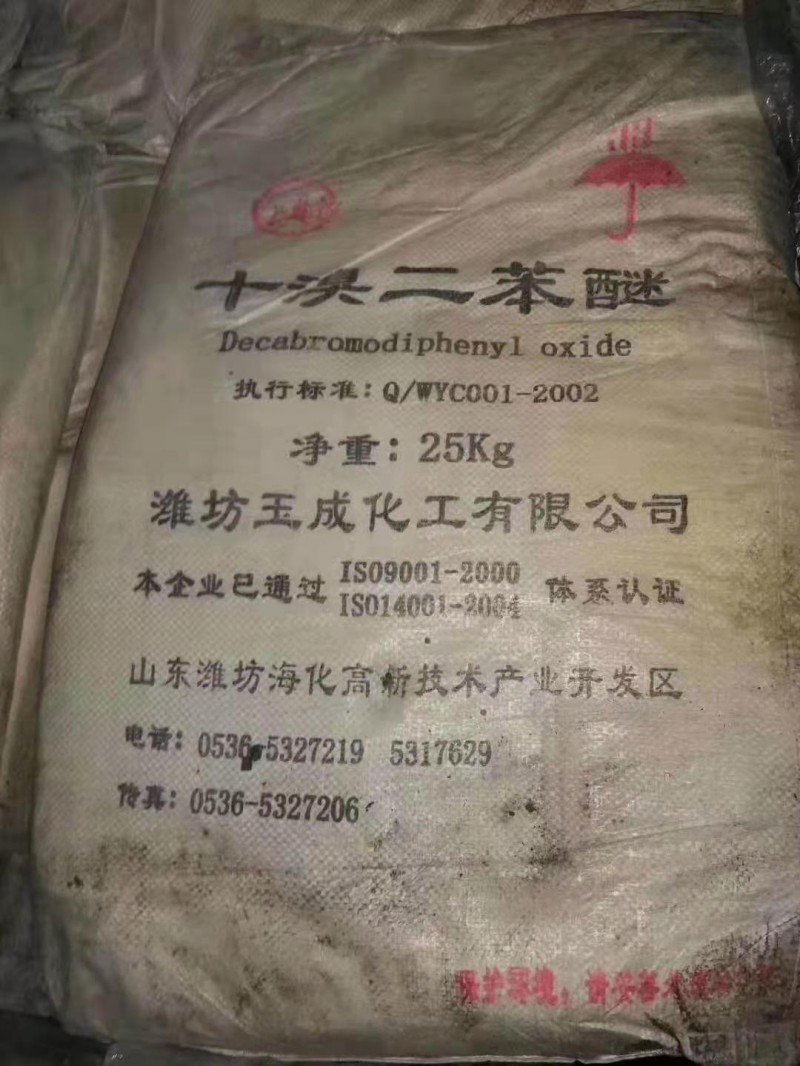 十溴二苯醚
Decabromodiphenyl oxide
执行标准: Q/WYC001-2002
净重: 25Kg
潍坊玉成化工有限公司
本企业已通过 ISO9001-2000 ISO14001-2004 体系认证
山东潍坊海化高新技术产业开发区
电话: 0536-5327219 5317629
传真: 0536-5327206
保护环境,请妥善